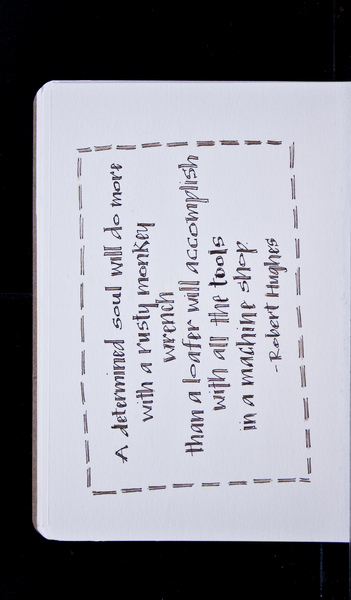 A determined soul will do more
with a rusty monkey
wrench
than a loafer will accomplish
with all the tools
in a machine shop.
- Robert Hughes